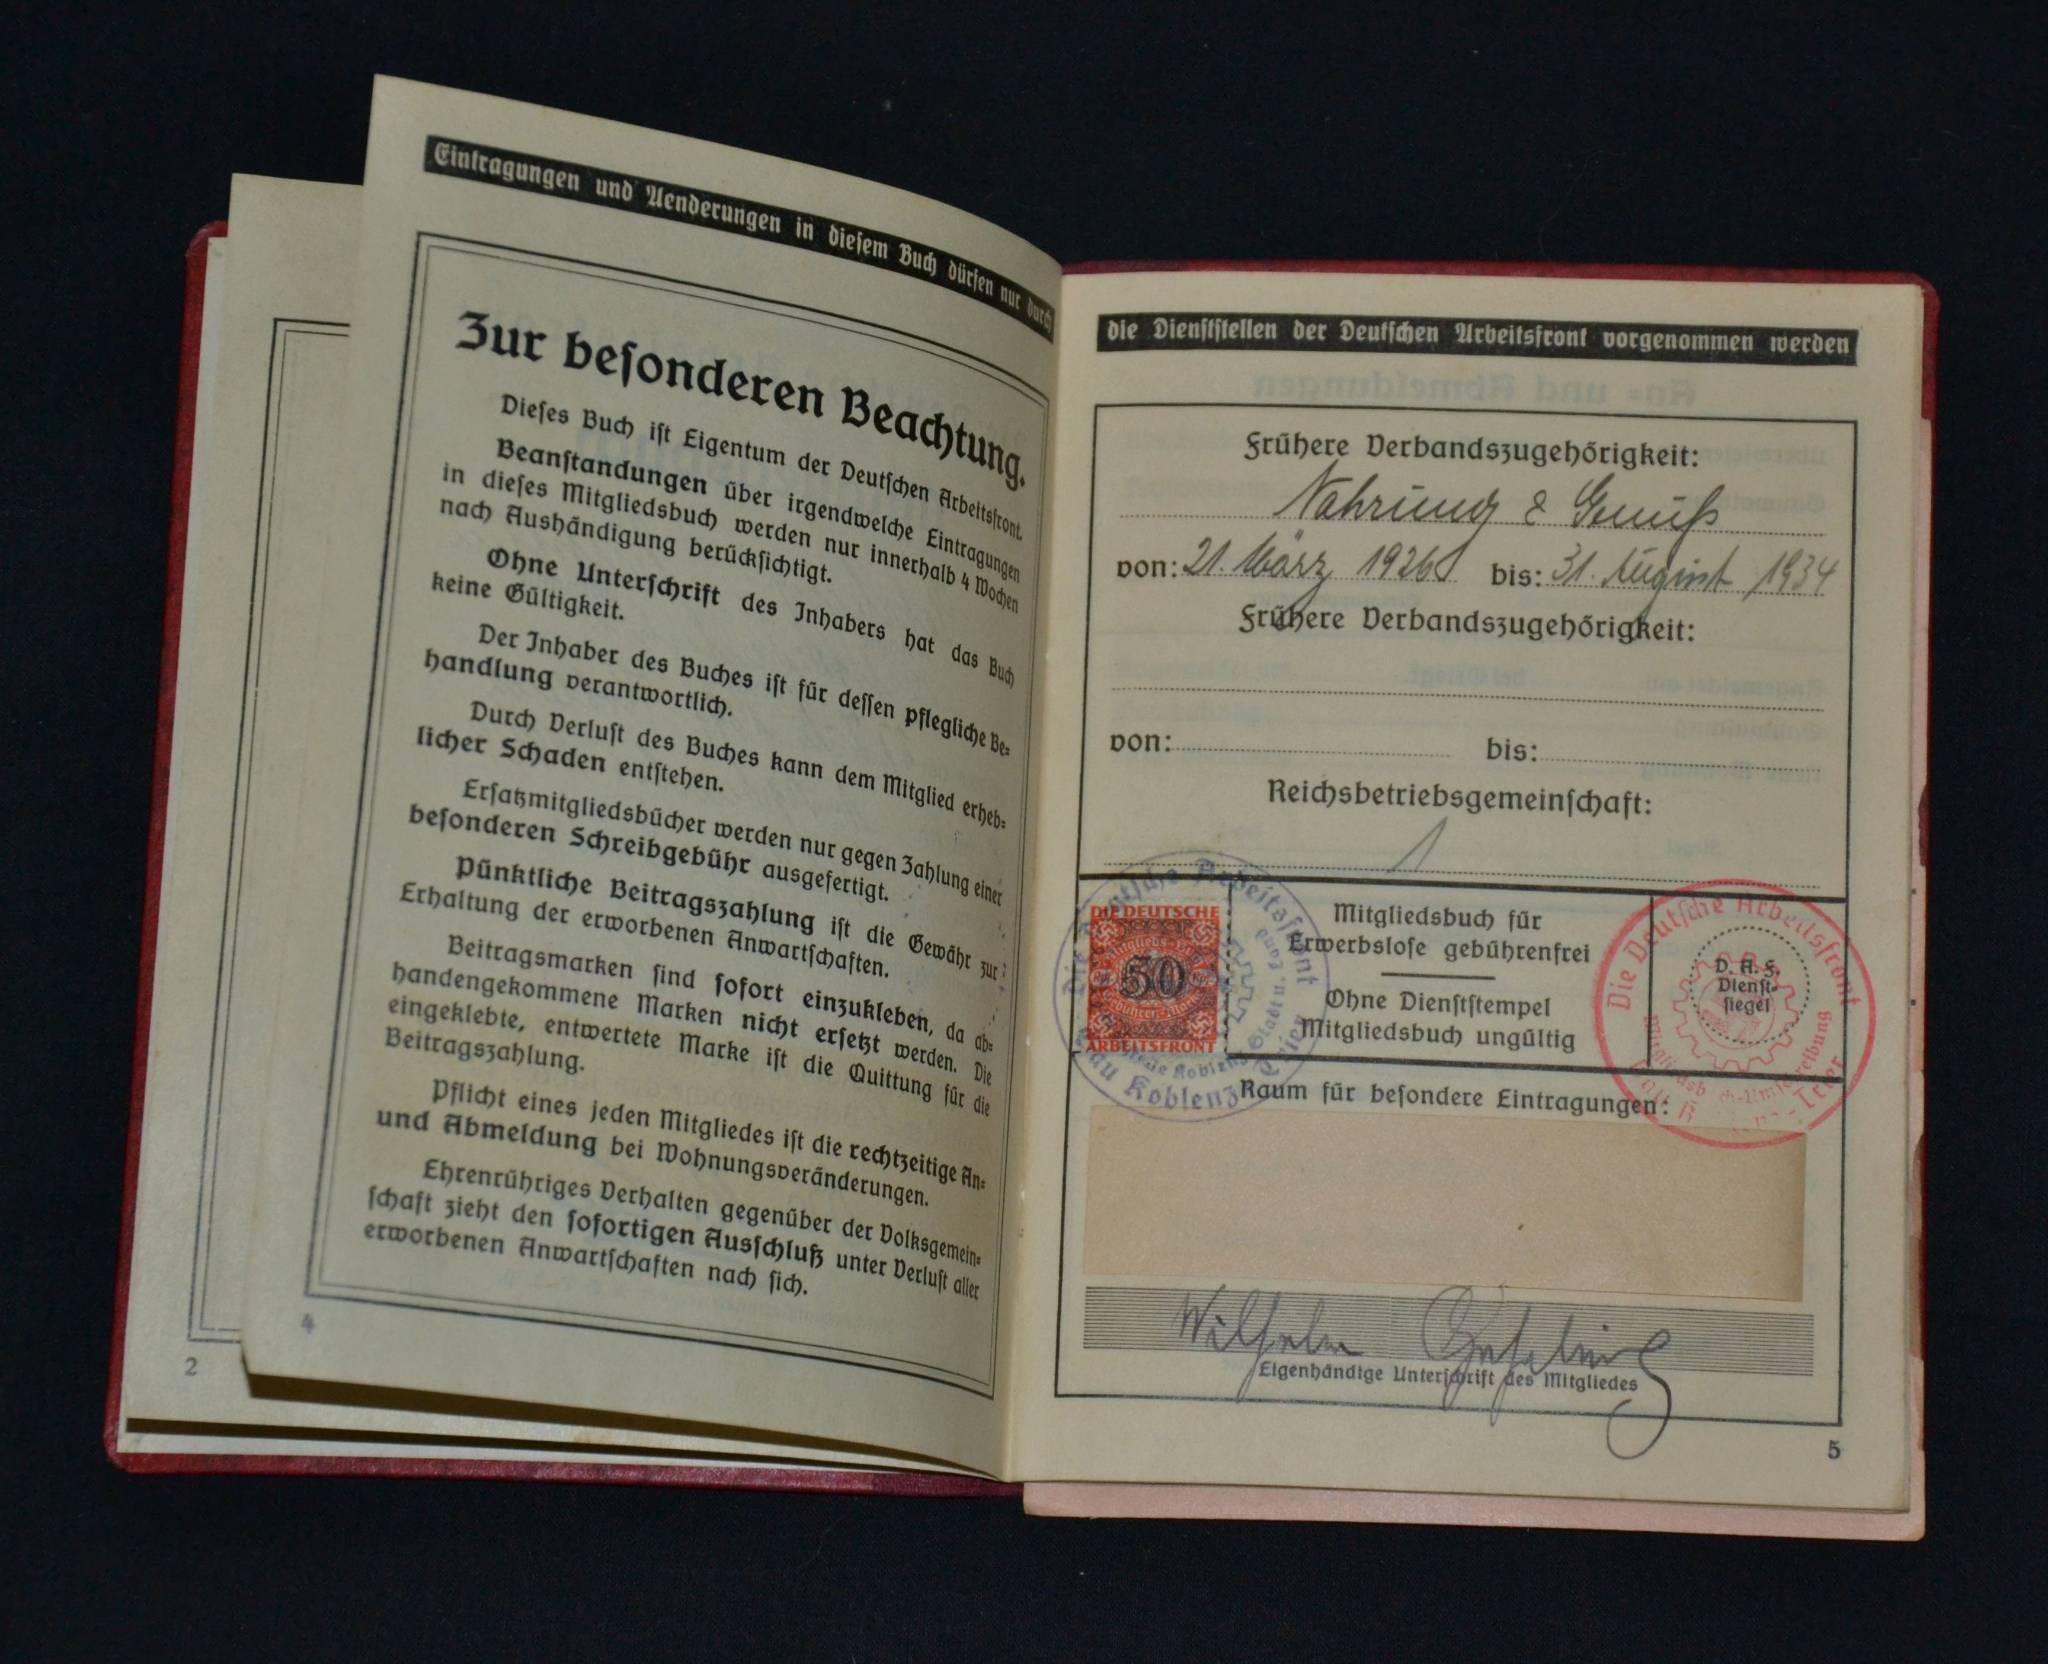 Eintragungen und Aenderungen in diesem Buch dürfen nur durch
Zur besonderen Beachtung.
Dieses Buch ist Eigentum der Deutschen Arbeitsfront.
Beanstandungen über irgendwelche Eintragungen
in dieses Mitgliedsbuch werden nur innerhalb 4 Wochen
nach Aushändigung berücksichtigt.
Ohne Unterschrift des Inhabers hat das Buch
keine Gültigkeit.
Der Inhaber des Buches ist für dessen pflegliche Be-
handlung verantwortlich.
Durch Verlust des Buches kann dem Mitglied erheb-
licher Schaden entstehen.
Ersatzmitgliedsbücher werden nur gegen Zahlung einer
besonderen Schreibgebühr ausgefertigt.
Pünktliche Beitragszahlung ist die Gewähr zur
Erhaltung der erworbenen Anwartschaften.
Beitragsmarken sind sofort einzukleben, da ab-
handengekommene Marken nicht ersetzt werden. Die
eingeklebte, entwertete Marke ist die Quittung für die
Beitragszahlung.
Pflicht eines jeden Mitgliedes ist die rechtzeitige An-
und Abmeldung bei Wohnungsveränderungen.
Ehrenrühriges Verhalten gegenüber der Volksgemein-
schaft zieht den sofortigen Ausschluß unter Verlust aller
erworbenen Anwartschaften nach sich.
4
2
die Dienststellen der Deutschen Arbeitsfront vorgenommen werden
Frühere Verbandszugehörigkeit:
Nahrung & Genuß
von: 21. März 1926 bis: 31. August 1934
Frühere Verbandszugehörigkeit:
von: bis:
Reichsbetriebsgemeinschaft:
1
Die Deutsche Arbeitsfront
Gau Koblenz Trier
DIE DEUTSCHE
50
ARBEITSFRONT
Mitgliedsbuch für
Erwerbslose gebührenfrei
Ohne Dienststempel
Mitgliedsbuch ungültig
Die Deutsche Arbeitsfront
D. A. F.
Dienst-
siegel
Raum für besondere Eintragungen:
Wilhelm
Eigenhändige Unterschrift des Mitgliedes
5